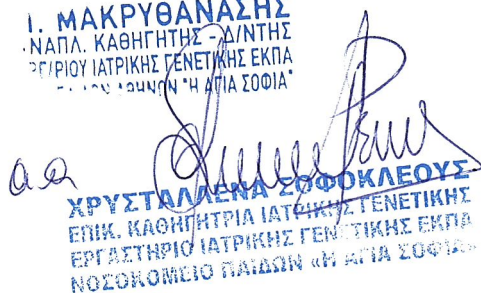 Ι. ΜΑΚΡΥΘΑΝΑΣΗΣ
ΝΑΠΛ. ΚΑΘΗΓΗΤΗΣ - Δ/ΝΤΗΣ
ΙΑΤΡΙΚΗΣ ΓΕΝΕΤΙΚΗΣ ΕΚΠΑ
"Η ΑΓΙΑ ΣΟΦΙΑ"
ΧΡΥΣΤΑΛΛΕΝΑ ΣΟΦΟΚΛΕΟΥΣ
ΕΠΙΚ. ΚΑΘΗΓΗΤΡΙΑ ΙΑΤΡΙΚΗΣ ΓΕΝΕΤΙΚΗΣ
ΕΡΓΑΣΤΗΡΙΟ ΙΑΤΡΙΚΗΣ ΓΕΝΕΤΙΚΗΣ ΕΚΠΑ
ΝΟΣΟΚΟΜΕΙΟ ΠΑΙΔΩΝ «Η ΑΓΙΑ ΣΟΦΙΑ»